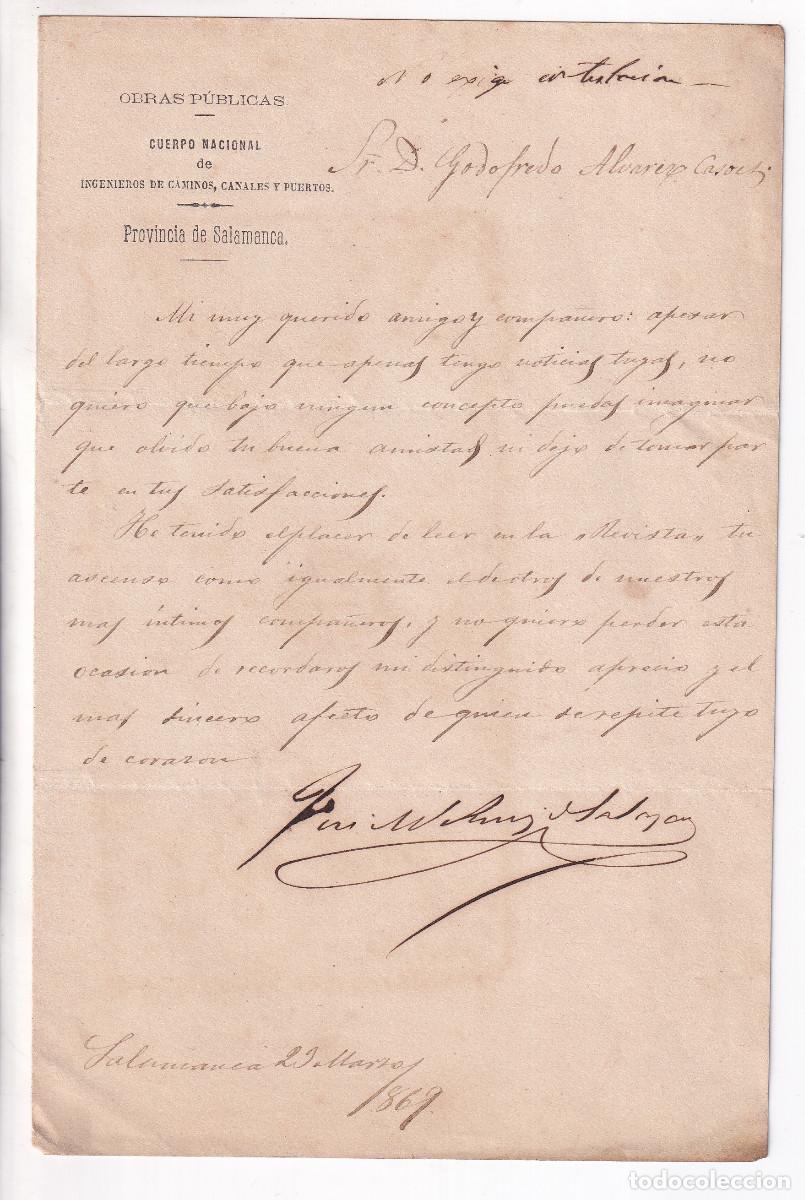 No exige contestacion —
OBRAS PÚBLICAS
CUERPO NACIONAL
de
INGENIEROS DE CAMINOS, CANALES Y PUERTOS.
Provincia de Salamanca.
Sr. D. Godofredo Alvarez Cascos
Mi muy querido amigo y compañero: apesar
del largo tiempo que apenas tengo noticias tuyas, no
quiero que bajo ningun concepto puedas imaginar
que olvido tu buena amistad ni dejo de tomar par
te en tus satisfacciones.
He tenido el placer de leer en la "Revista" tu
ascenso como igualmente el de otros de nuestros
mas íntimos compañeros, y no quiero perder esta
ocasion de recordaros mi distinguido aprecio y el
mas sincero afecto de quien se repite tuyo
de corazon
José M Ruiz d Salazar
Salamanca 23 Marzo
1869.
todocoleccion